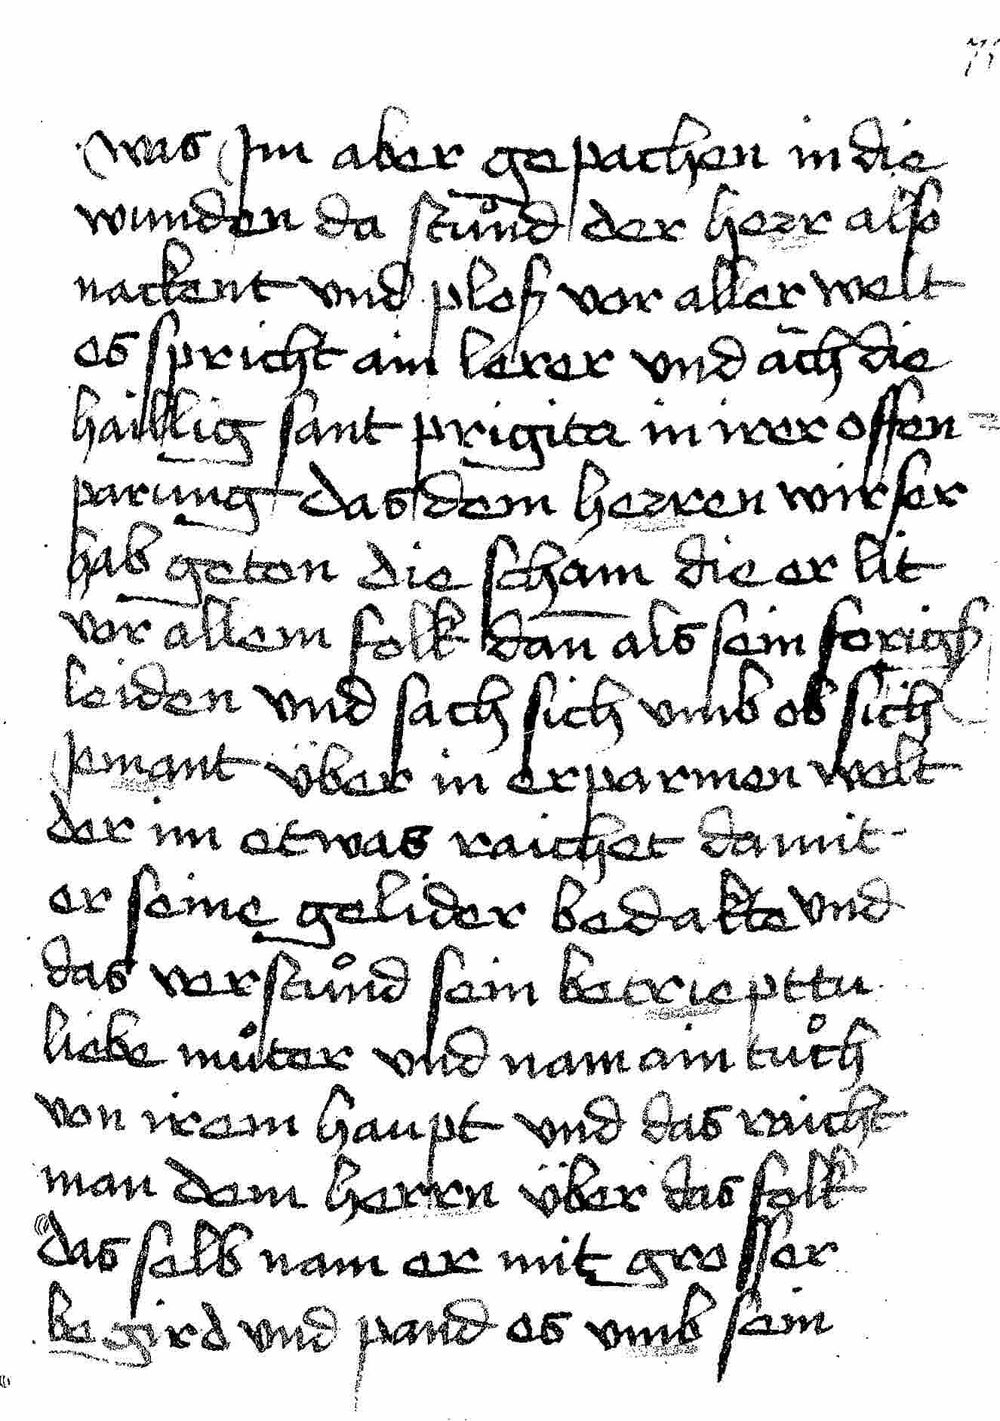 was Im aber gepachen in die
wunden da stůnd der herr also
nackent vnd ploß vor aller welt
es spricht ain lerer vnd ach die
haillig sant prigita in irer offen=
parung das dem herren wirser
hab geton die scham die er lit
vor allem folk dan als sein forigß
leiden vnd sach sich vmb ob sich
Jemant über in erparmen welt
der im etwas raichet damit
er seine gelider bedakte vnd
das verstůnd sein betriepttu
liebe můter vnd nam ain tůch
von irem haupt vnd das raicht
man dem herrn über das folk
das selb nam er mit grosser
begird vnd pand es vmb sein